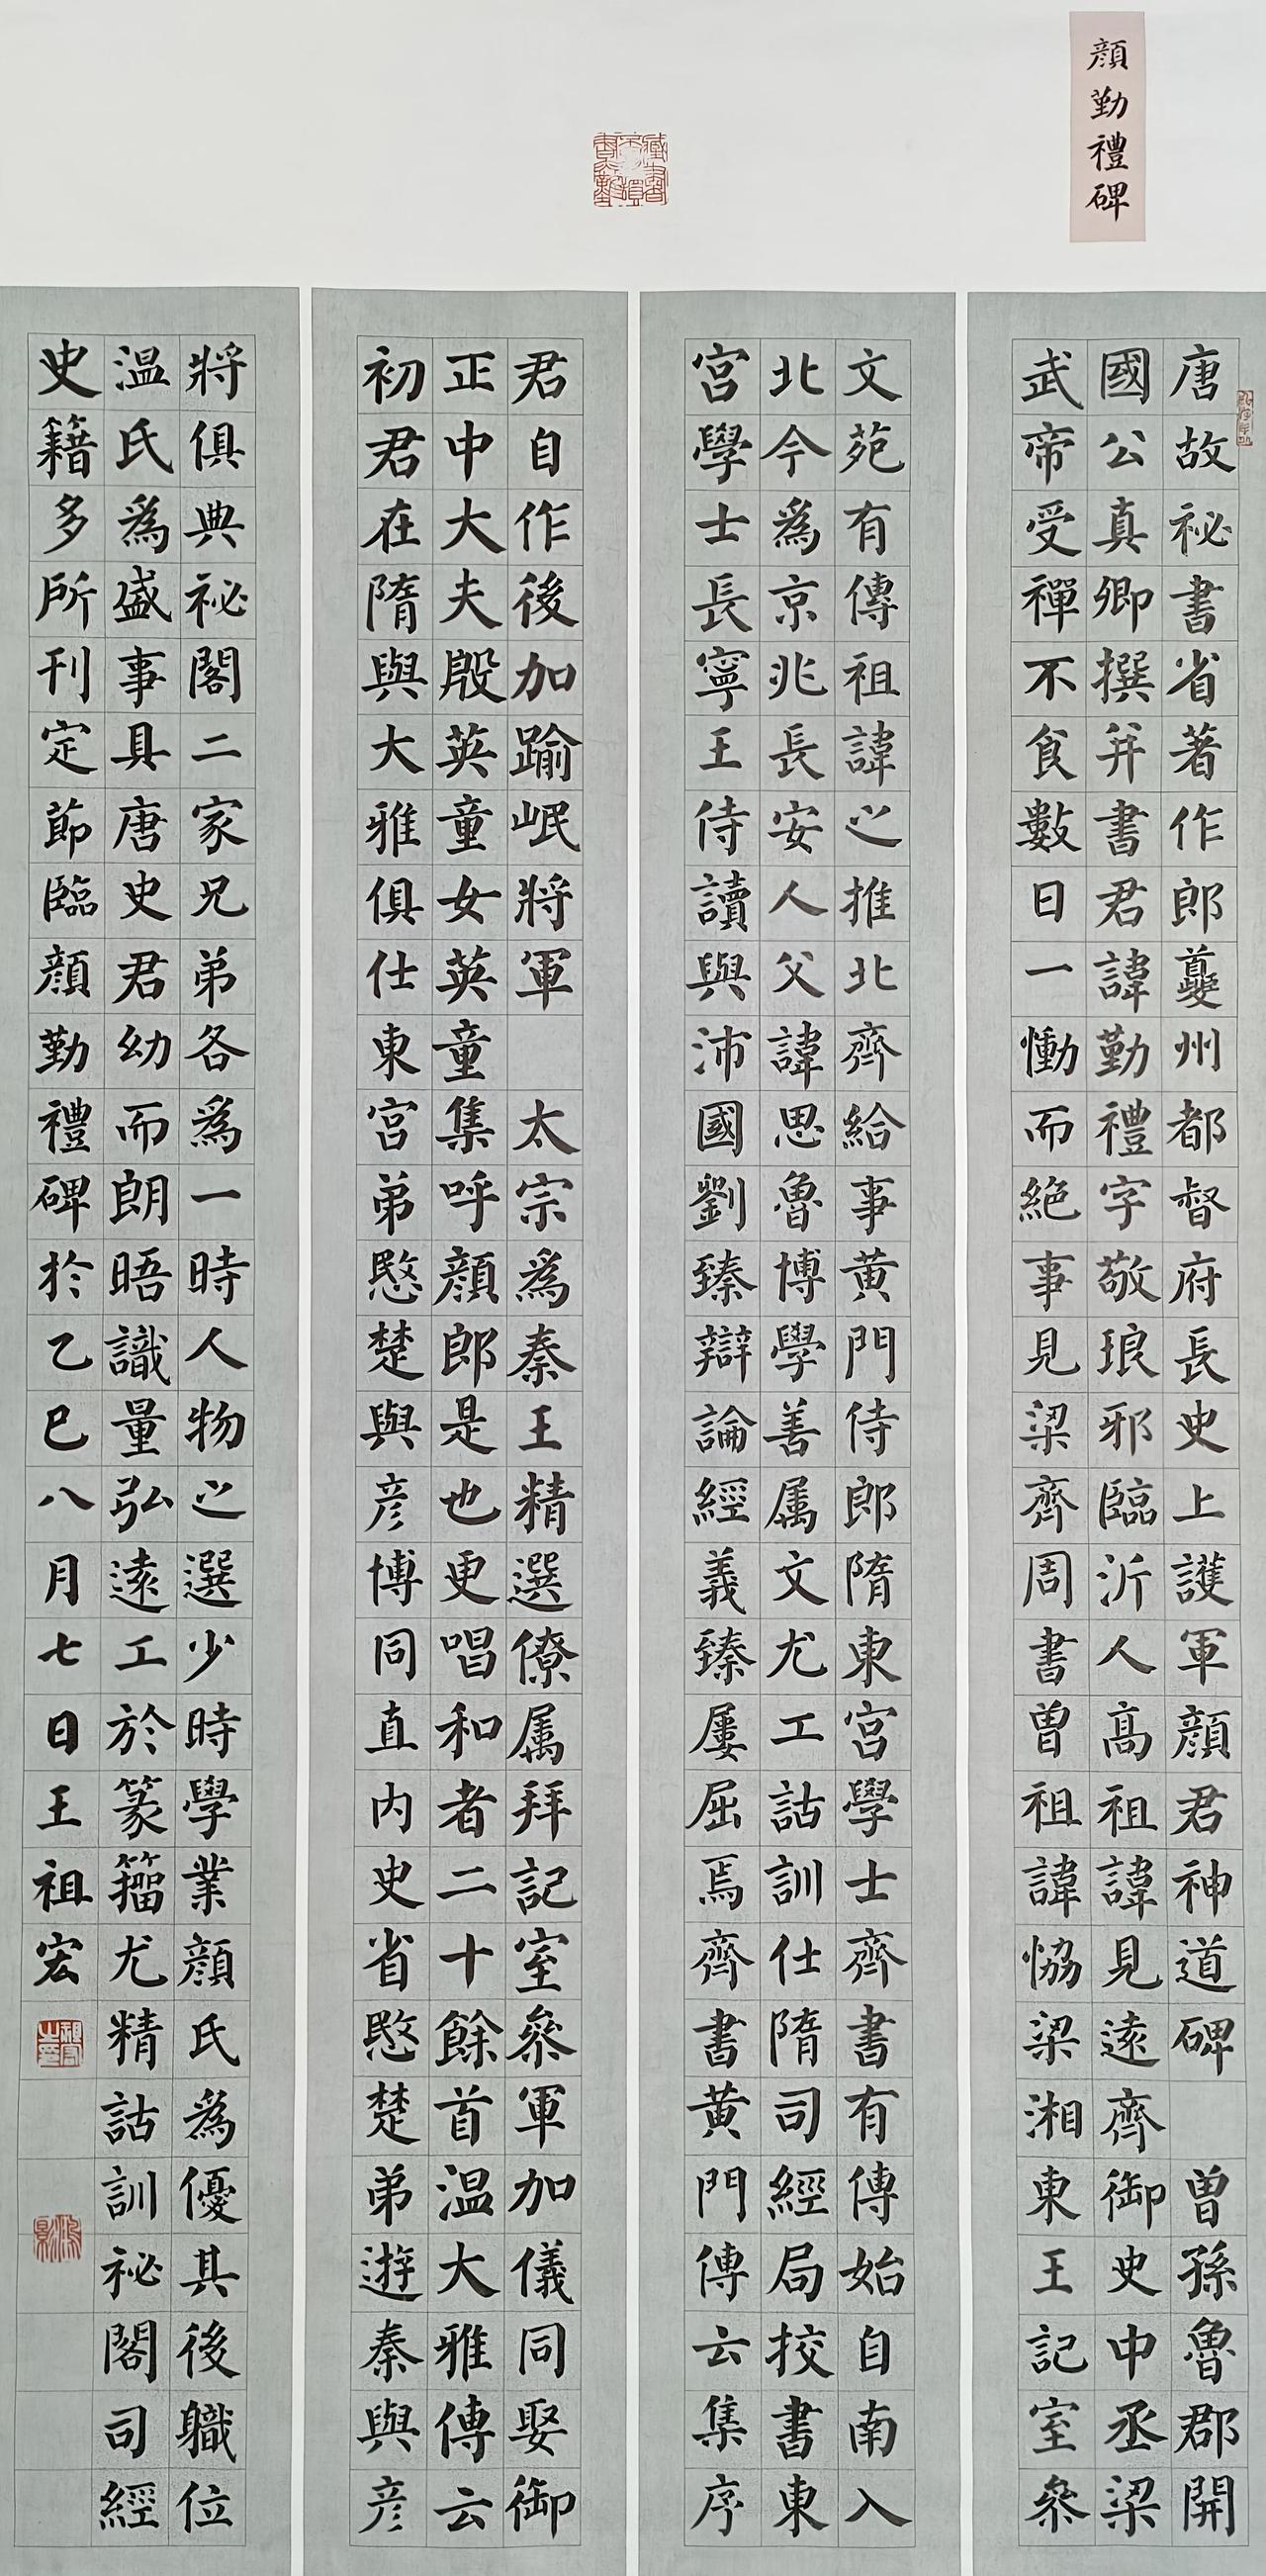 顏勤禮碑
唐故祕書省著作郎夔州都督府長史上護軍顏君神道碑 曾孫魯郡開
國公真卿撰并書君諱勤禮字敬琅邪臨沂人高祖諱見遠齊御史中丞梁
武帝受禪不食數日一慟而絶事見梁齊周書曾祖諱恊梁湘東王記室參
文苑有傳祖諱之推北齊給事黄門侍郎隋東宮學士齊書有傳始自南入
北今爲京兆長安人父諱思魯博學善属文尤工詁訓仕隋司經局挍書東
宮學士長寧王侍讀與沛國劉臻辯論經義臻屢屈焉齊書黄門傳云集序
君自作後加踰岷將軍 太宗爲秦王精選僚属拜記室參軍加儀同娶御
正中大夫殷英童女英童集呼顏郎是也更唱和者二十餘首温大雅傳云
初君在隋與大雅俱仕東宮弟愍楚與彦博同直内史省愍楚弟遊秦與彦
將俱典祕閣二家兄弟各爲一時人物之選少時學業顏氏爲優其後職位
温氏爲盛事具唐史君幼而朗晤識量弘遠工於篆籀尤精詁訓祕閣司經
史籍多所刊定節臨顏勤禮碑於乙巳八月七日王祖宏